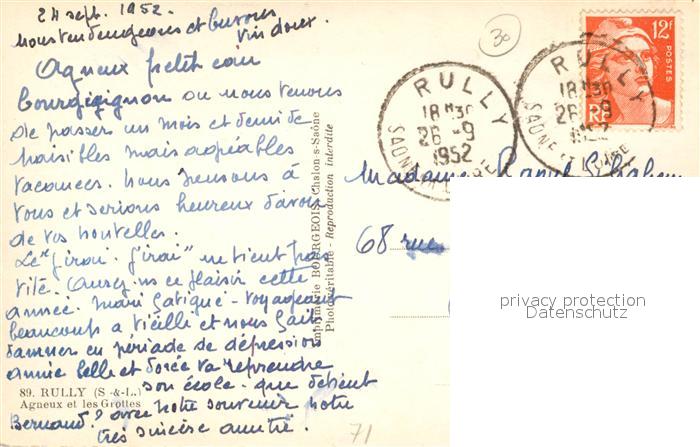 24 sept. 1952.
nous vendangeons et buvons
vin doux.
Agneux petit coin
bourguignon où nous venons
de passer un mois et demi de
paisibles mais agréables
vacances. Nous pensons à
vous et serions heureux d'avoir
de vos nouvelles.
Le "J'irai. J'irai" ne tient pas
vite. Aurez-ns ce plaisir cette
année. Mari fatigué - voyageant
beaucoup a vieilli et nous fait
damner en période de dépression
année belle et dorée va reprendre
son école. que devient
Bernard? avec notre souvenir notre
très sincère amitié.
89. RULLY (S.-&-L.)
Agneux et les Grottes
Imprimerie BOURGEOIS, Chalon-s-Saône
Photovéritable - Reproduction interdite
30
RULLY
18 H30
26 -9
1952
SAONE-ET-LOIRE
RULLY
18 H30
26 -9
1952
SAONE-ET-LOIRE
12F
POSTES
RF
Madame
68 rue
privacy protection
Datenschutz
71